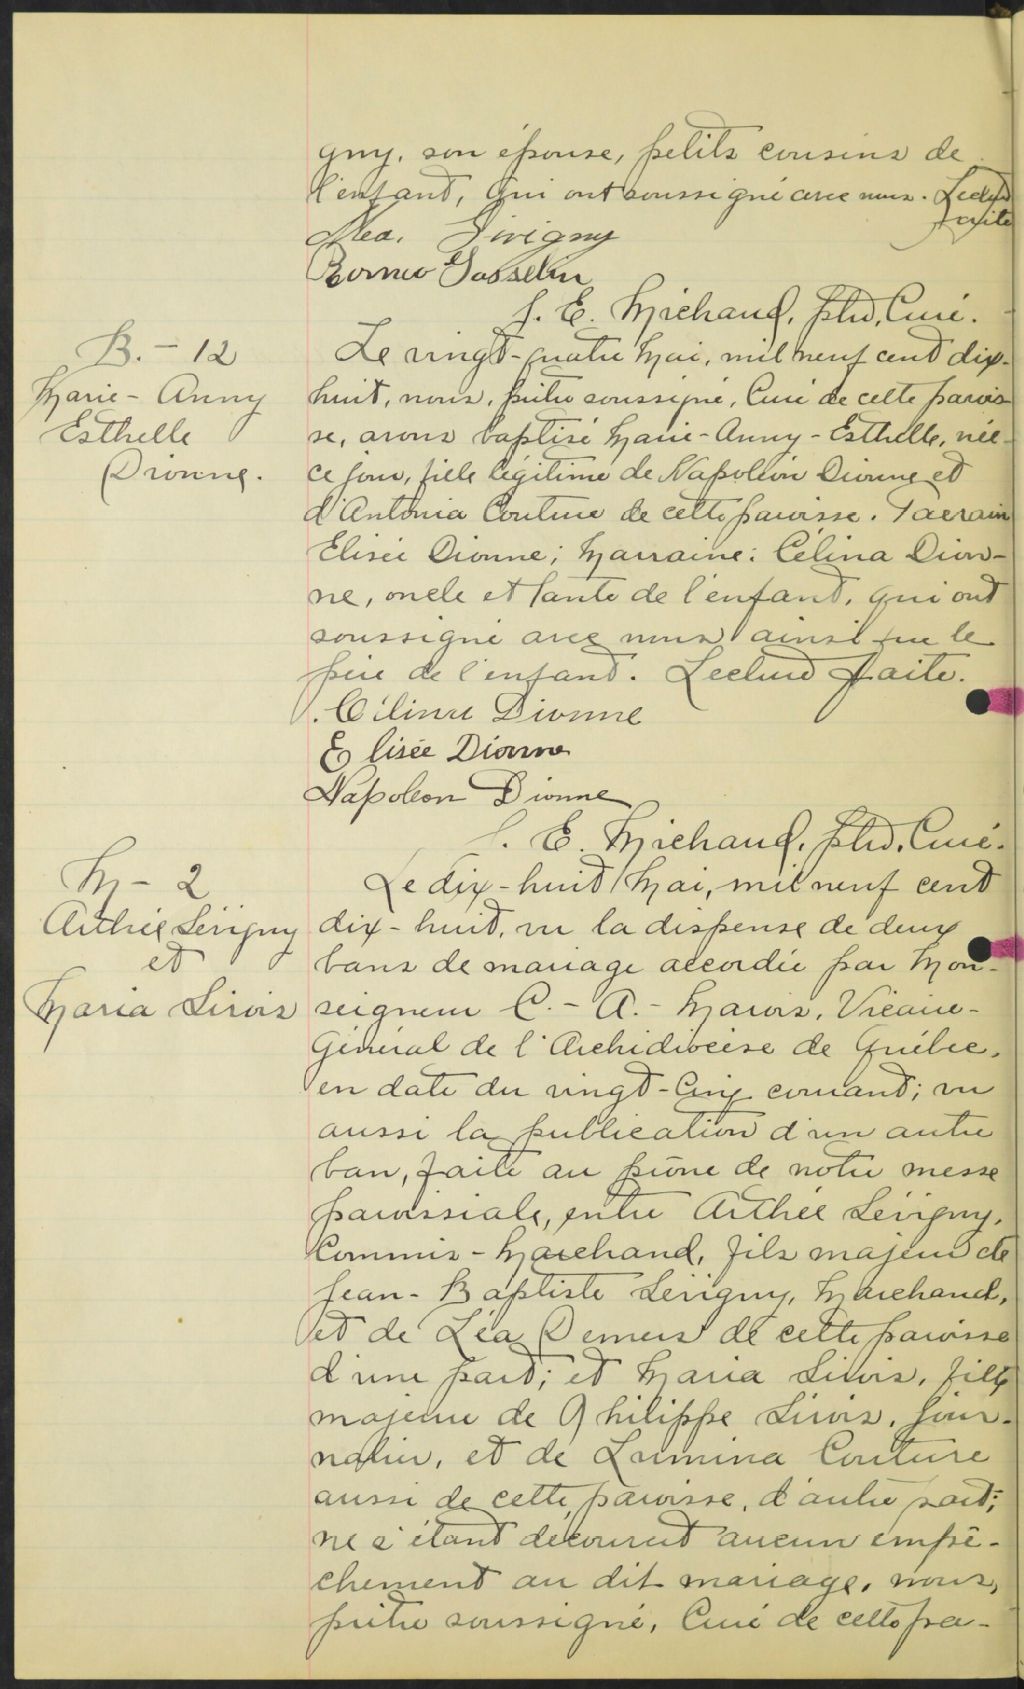 gny, son épouse, petits cousins de
l'enfant, qui ont soussigné avec nous. Lecture
faite
Méd. Sévigny
Romeo Gosselin
J. E. Michaud, Ptre, Curé.
B. - 12
Marie - Anny
Esthelle
Dionne.
Le vingt-quatre Mai, mil neuf cent dix-
huit, nous, prêtre soussigné, Curé de cette parois-
se, avons baptisé Marie-Anny-Esthelle, née
ce jour, fille légitime de Napoléon Dionne et
d'Antonia Couture de cette paroisse. Parrain
Elisée Dionne; Marraine: Célina Dion-
ne, oncle et tante de l'enfant, qui ont
soussigné avec nous ainsi que le
père de l'enfant. Lecture faite.
Célina Dionne
Elisée Dionne
Napoleon Dionne
J. E. Michaud, Ptre, Curé.
M - 2
Arthée Sévigny
et
Maria Sirois
Le dix-huit Mai, mil neuf cent
dix-huit, vu la dispense de deux
bans de mariage accordée par Mon-
seigneur C. - A. - Marois, Vicaire-
Général de l'Archidiocèse de Québec,
en date du vingt-Cinq courant; vu
aussi la publication d'un autre
ban, faite au prône de notre messe
paroissiale, entre Arthée Sévigny,
Commis-Marchand, fils majeur de
Jean-Baptiste Sévigny, Marchand,
et de Léa Demers de cette paroisse
d'une part; et Maria Sirois, fille
majeure de Philippe Sirois, jour-
nalier, et de Lumina Couture
aussi de cette paroisse, d'autre part;
ne s'étant découvert aucun empê-
chement au dit mariage, nous,
prêtre soussigné, Curé de cette pa-